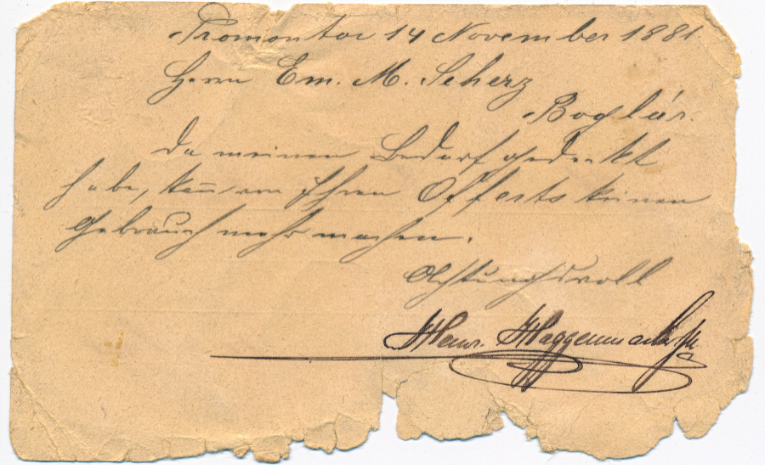 Promontor 14 November 1881
Herrn Em. M. Scherz
Boglár.
Da meinen Bedarf gedeckt
habe, kann von Ihren Offerts keinen
Gebrauch mehr machen.
Achtungsvoll
Henr. Haggenmacher